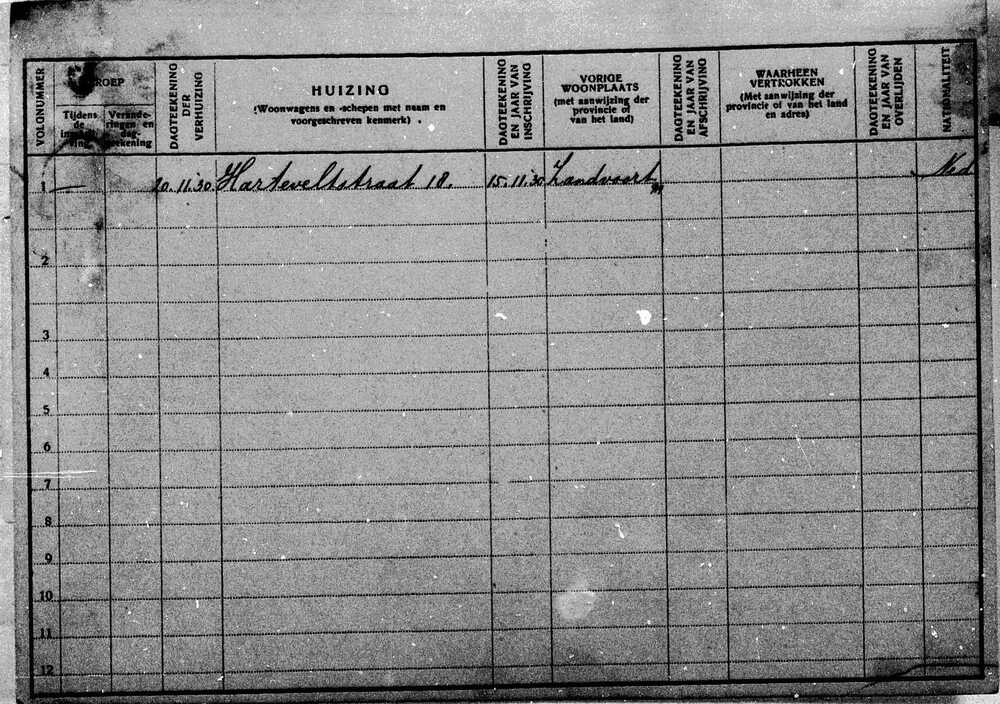 VOLGNUMMER
BEROEP
Tijdens de inschrijving
Verande-
ringen en
dag-
teekening
DAGTEEKENING
DER
VERHUIZING
HUIZING
(Woonwagens en -schepen met naam en
voorgeschreven kenmerk)
DAGTEEKENING
EN JAAR VAN
INSCHRIJVING
VORIGE
WOONPLAATS
(met aanwijzing der
provincie of
van het land)
DAGTEEKENING
EN JAAR VAN
AFSCHRIJVING
WAARHEEN
VERTROKKEN
(Met aanwijzing der
provincie of van het land
en adres)
DAGTEEKENING
EN JAAR VAN
OVERLIJDEN
NATIONALITEIT
1 — 20.11.30 Harteveltstraat 18. 15.11.30 Zandvoort Ned
2
3
4
5
6
7
8
9
10
11
12